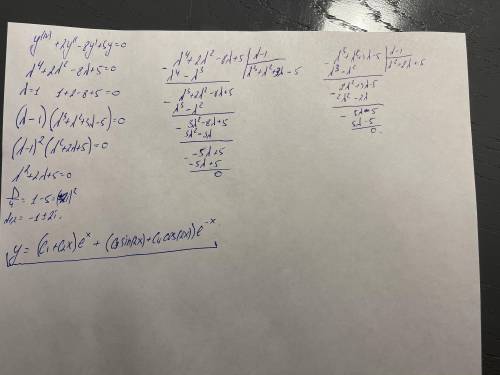 y^(IV) + 2y'' - 8y' + 5y = 0
λ⁴ + 2λ² - 8λ + 5 = 0
λ = 1   1 + 2 - 8 + 5 = 0
(λ - 1)(λ³ + λ² + 3λ - 5) = 0
(λ - 1)² (λ² + 2λ + 5) = 0
λ² + 2λ + 5 = 0
D/4 = 1 - 5 = (2i)²
λ₁,₂ = -1 ± 2i
y = (C₁ + C₂x) e^x + (C₃ sin(2x) + C₄ cos(2x)) e^-x
- λ⁴ + 2λ² - 8λ + 5 | λ - 1
λ⁴ - λ³ | λ³ + λ² + 3λ - 5
- λ³ + 2λ² - 8λ + 5
λ³ - λ²
- 3λ² - 8λ + 5
3λ² - 3λ
- -5λ + 5
-5λ + 5
0
- λ³ + λ² + 3λ - 5 | λ - 1
λ³ - λ² | λ² + 2λ + 5
- 2λ² + 3λ - 5
2λ² - 2λ
- 5λ - 5
5λ - 5
0